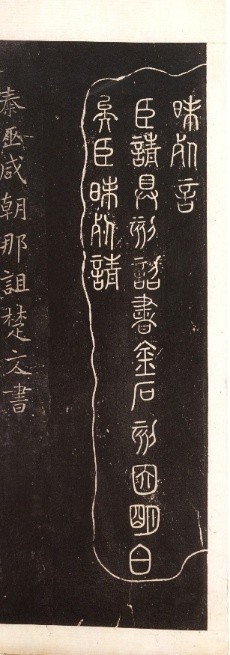 昧死言
臣請具刻詔書金石刻因明白
矣臣昧死請
秦巫咸朝那詛楚文書